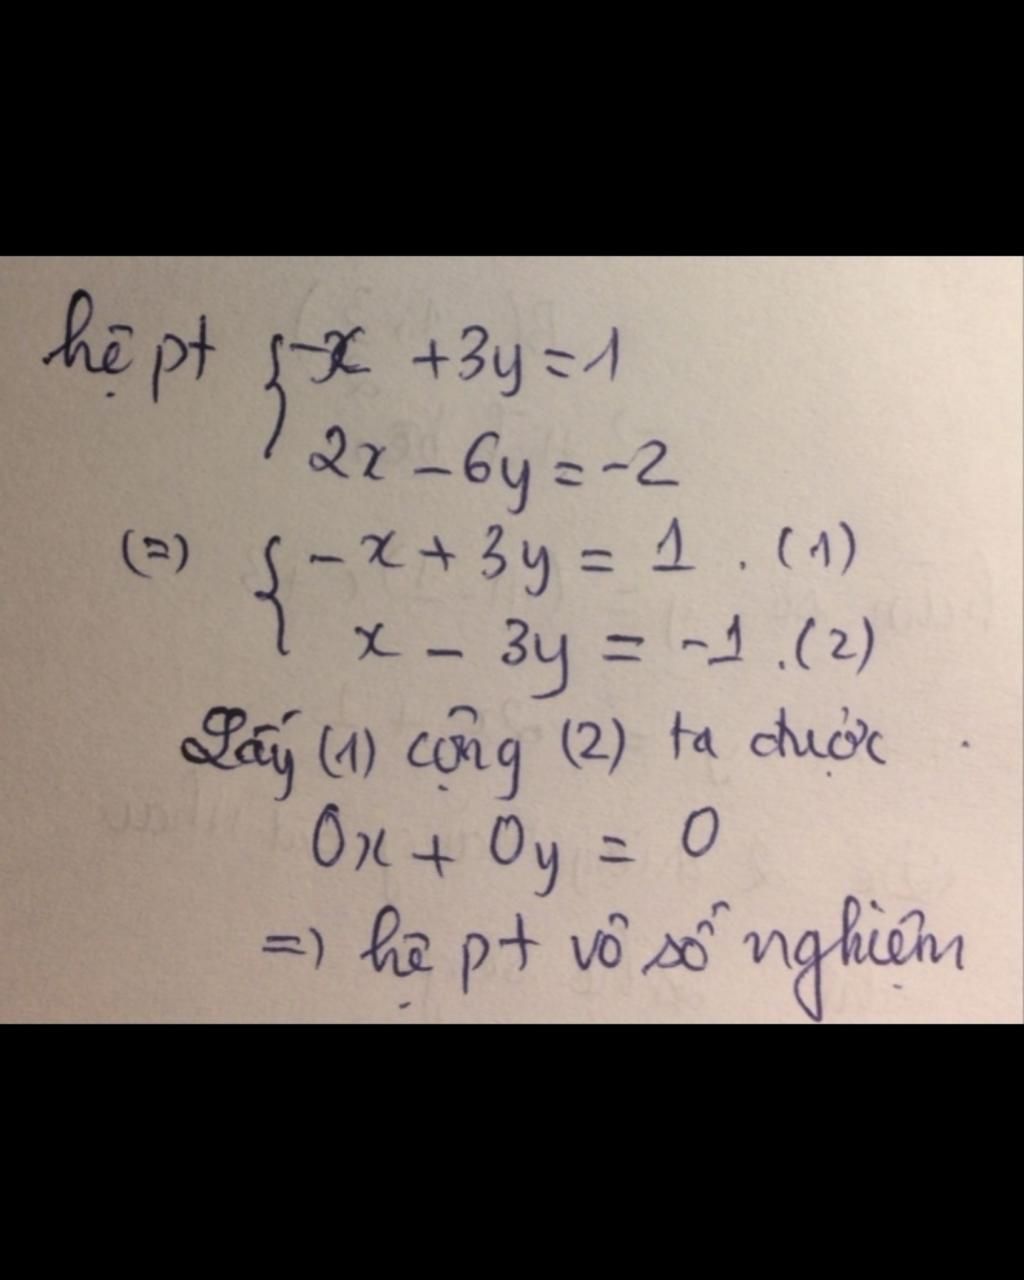 hệ pt { -x + 3y = 1
2x - 6y = -2
(=) { - x + 3y = 1 . (1)
x - 3y = -1 . (2)
Lấy (1) cộng (2) ta được .
0x + 0y = 0
=) hệ pt vô số nghiệm